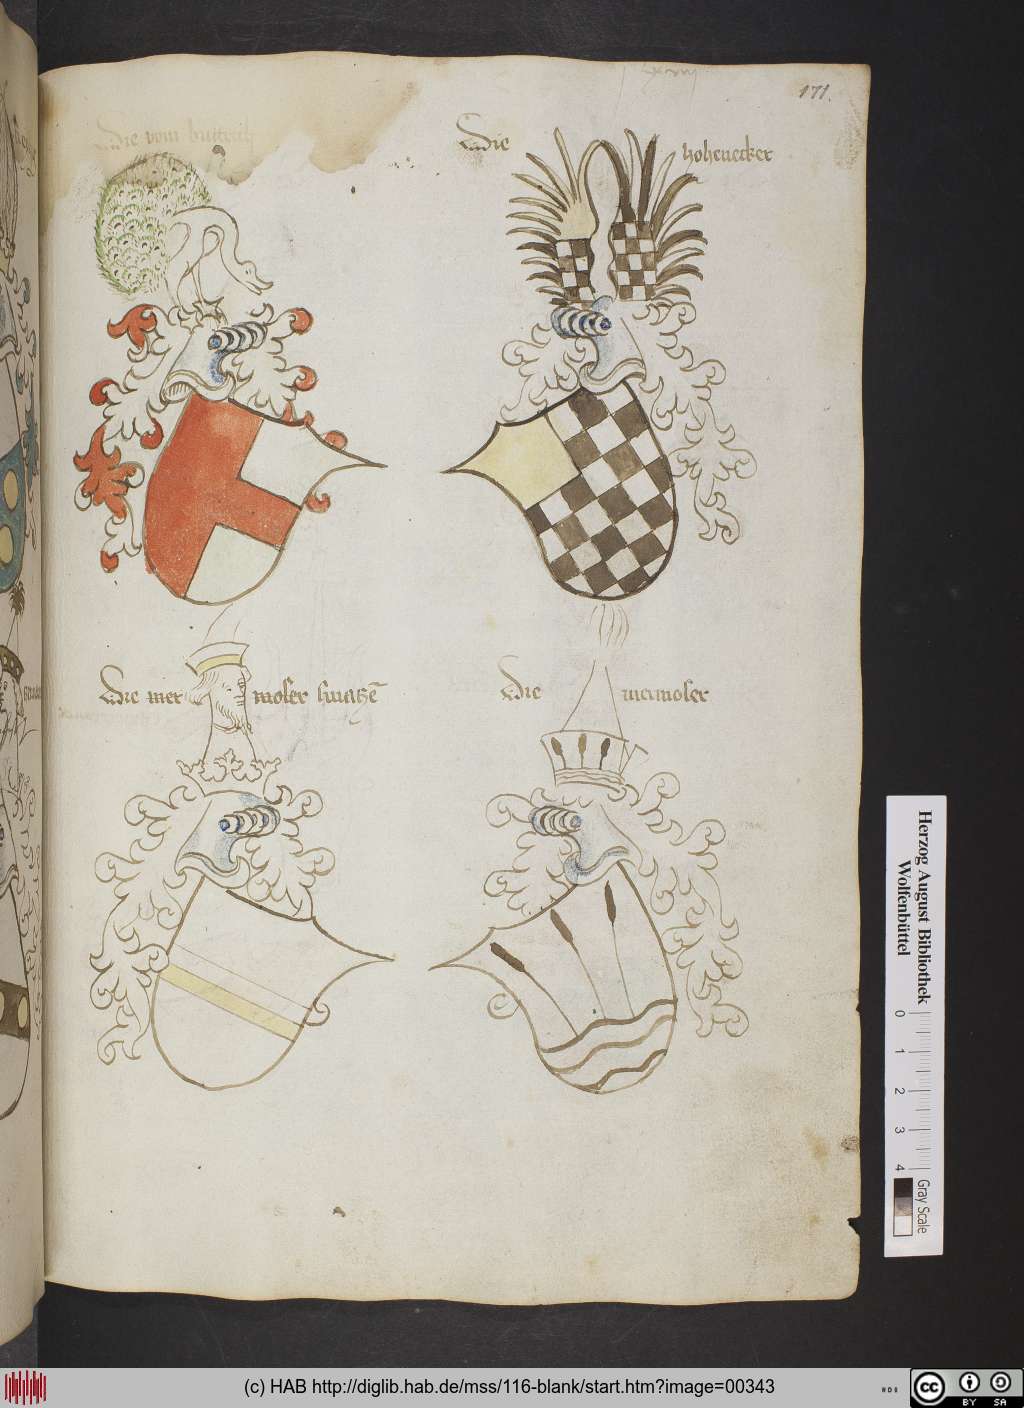 171.
Die vom
Die hohenecker
Die mer moser hintze
Die wermoser
Herzog August Bibliothek
Wolfenbüttel
0 1 2 3 4
Gray Scale
(c) HAB http://diglib.hab.de/mss/116-blank/start.htm?image=00343
cc BY SA